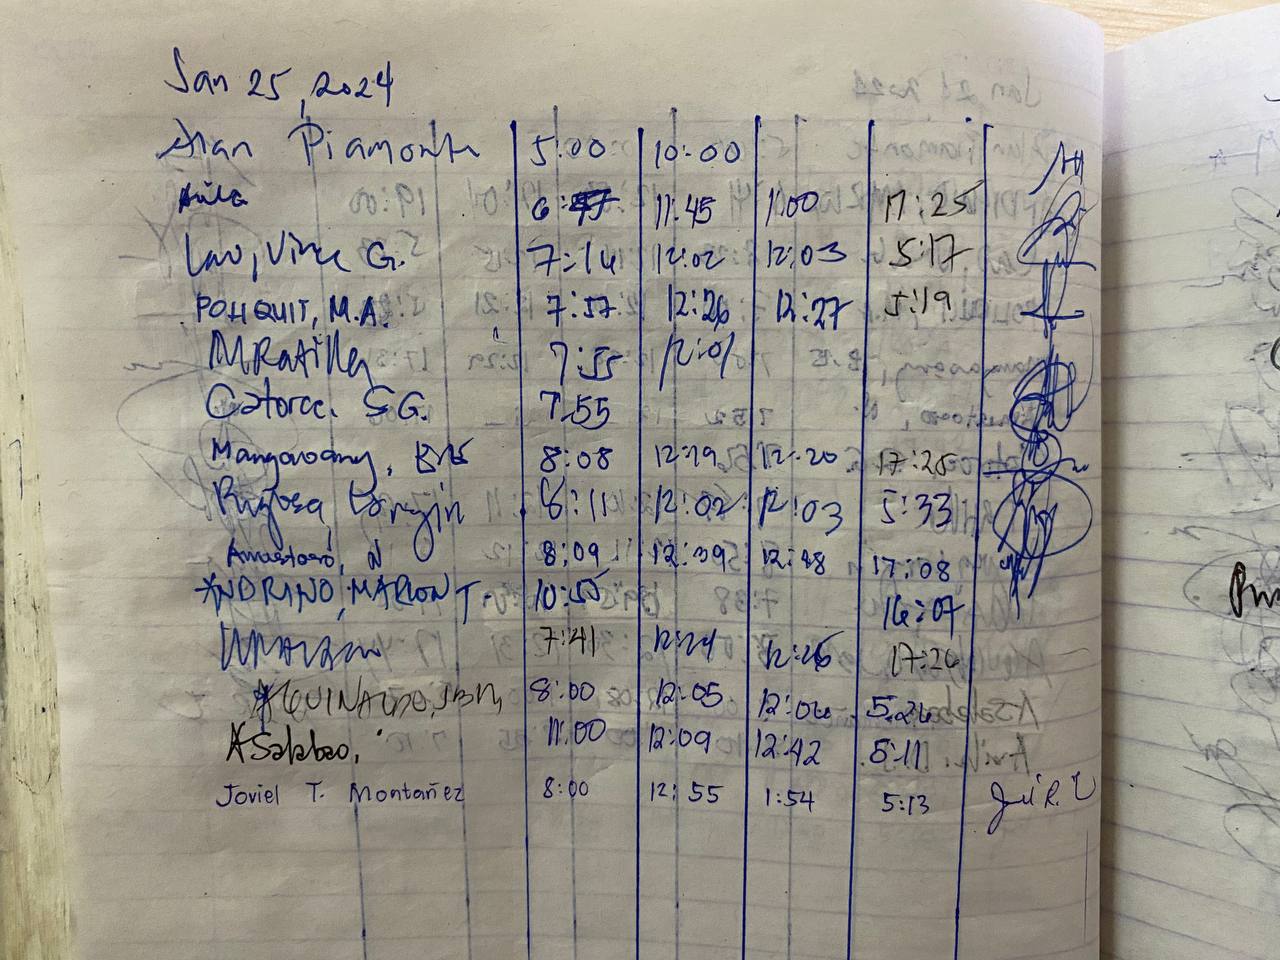 Jan 25, 2024
Alan Piamonte 5:00 10:00
Avila 6:47 11:45 1:00 17:25
Lao, Vince G. 7:16 12:02 12:03 5:17
POHQUIT, M.A. 7:57 12:26 12:27 5:19
MRatilla 7:55 12:01
Catorce. S.G. 7.55
8:08 12:19 12:20 17:28
8:11 12:02 12:03 5:33
N 8:09 12:39 12:48 17:08
INDRINO, MARION T. 10:55 16:07
7:41 12:24 12:26 17:26
AGUINALDO, JBM, 8:00 12:05 12:06 5.26
ASalabao, 11:00 12:09 12:42 5:11
Joviel T. Montañez 8:00 12:55 1:54 5:13